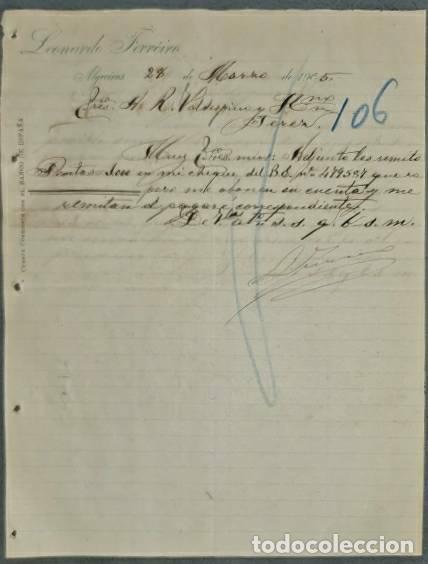 Leonardo Ferreiro
Algeciras 28 de Marzo de 1905.
Sres. A. R. Valdespino y Hno
Jerez.
106
Muy Sres. mios: Adjunto les remito
Pesetas en mi cheque del B.E. nº 479587 que es
pero me abonen en cuenta y me
remitan el pagaré correspondiente.
De Vds. atº s. s. q. b. s. m.
CUENTA CORRIENTE CON EL BANCO DE ESPAÑA
todocoleccion.net